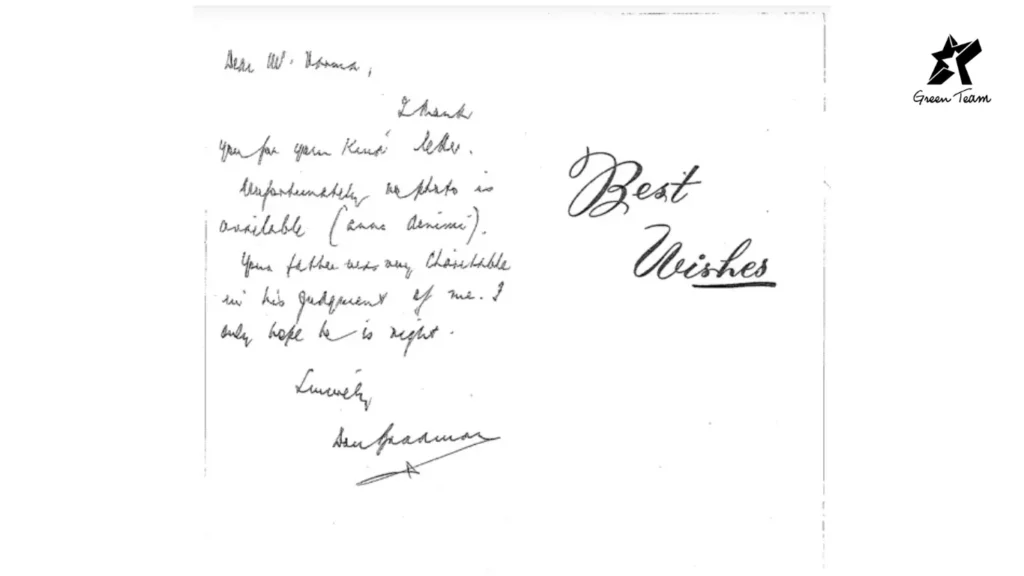 Dear Mr. Varma,
I thank
you for your kind letter.
Unfortunately no photo is
available (anno domini).
Your father was very charitable
in his judgment of me. I
only hope he is right.
Sincerely
Don Bradman
Best
Wishes
Green Team